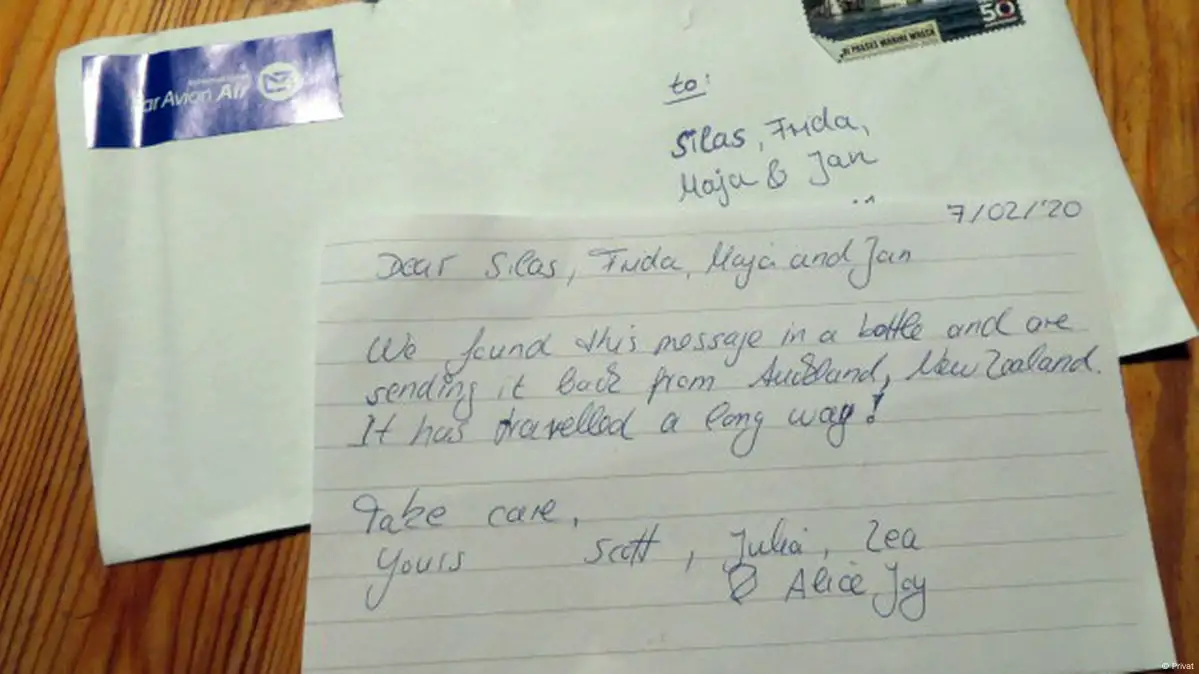 Par Avion Air
50
PHASES MARINE WRECK
to:
Silas, Frida,
Maja & Jan
7/02/'20
Dear Silas, Frida, Maja and Jan
We found this message in a bottle and are
sending it back from Auckland, New Zealand.
It has travelled a long way!
Take care,
Yours Scott, Julia, Zea
& Alice Joy
© Privat